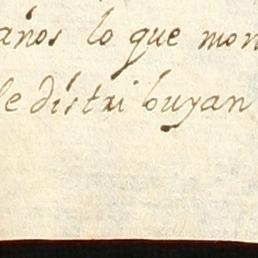 años lo que mon
le distribuyan